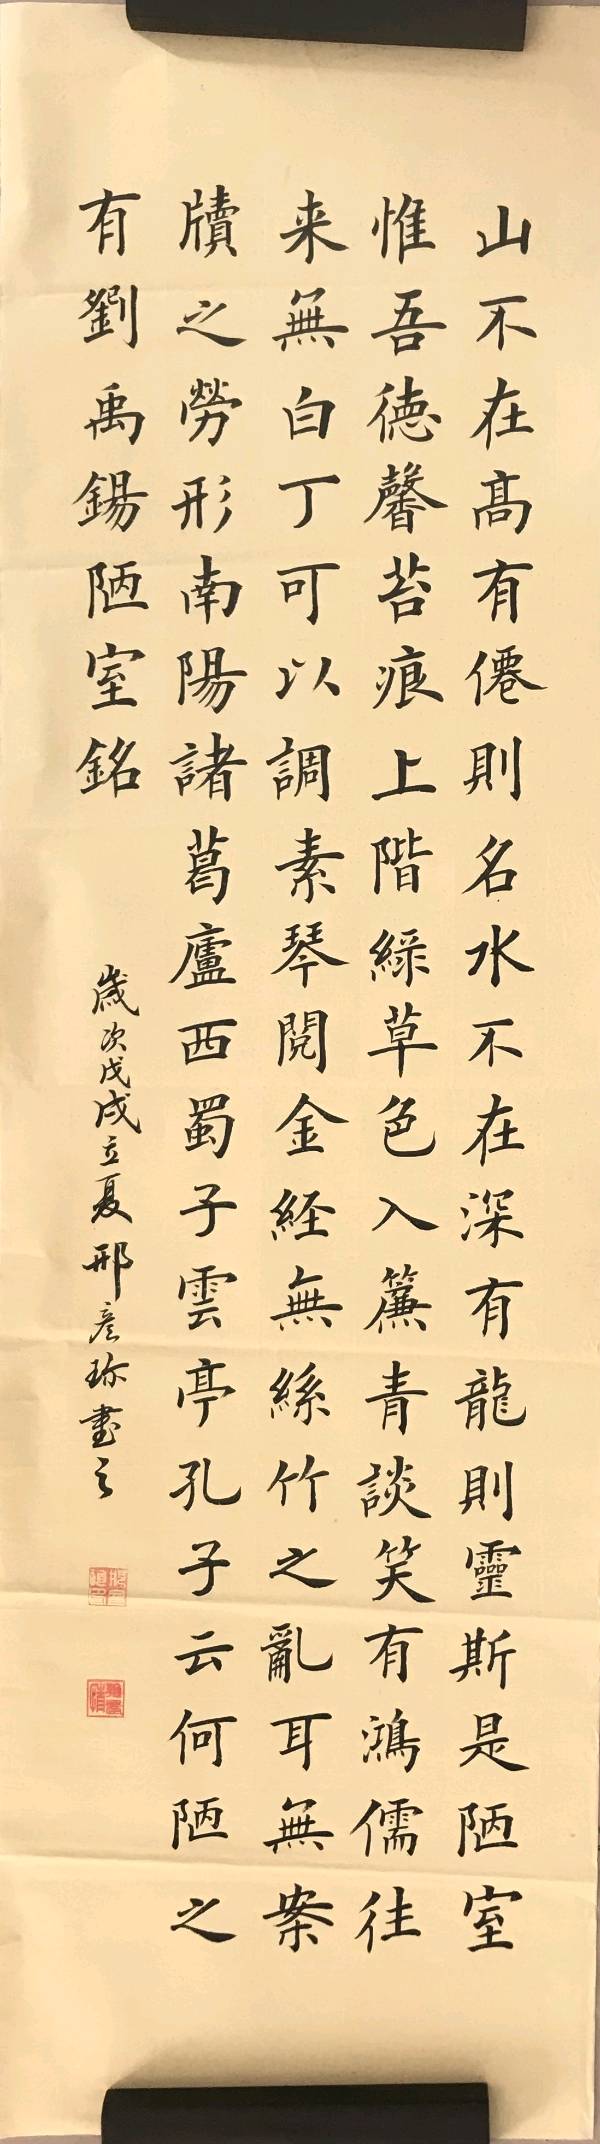 山不在高有僊則名水不在深有龍則靈斯是陋室
惟吾徳馨苔痕上階緑草色入簾青談笑有鴻儒往
来無白丁可以調素琴閱金経無絲竹之亂耳無案
牘之勞形南陽諸葛廬西蜀子雲亭孔子云何陋之
有劉禹錫陋室銘
歲次戊戌立夏邢彦珍書之